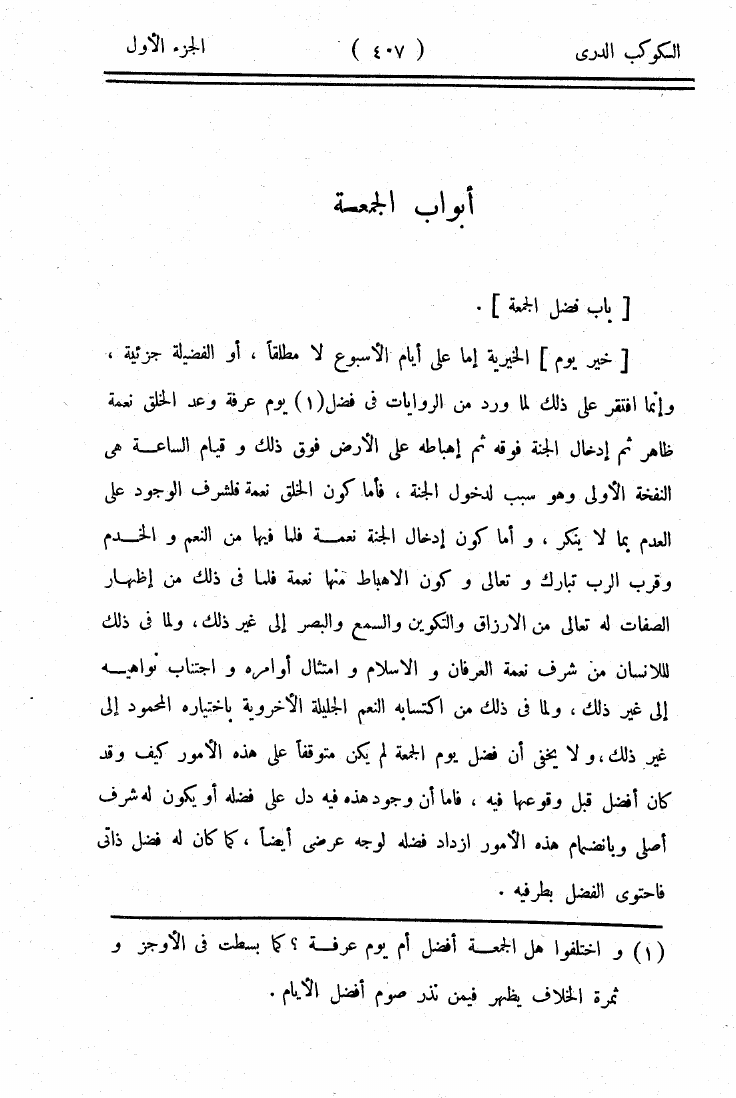 الكوكب الدرى ( ٤٠٧ ) الجزء الأول
أبواب الجمعـة
[ باب فضل الجمعة ] .
[ خير يوم ] الخيرية إما على أيام الأسبوع لا مطلقاً ، أو الفضيلة جزئية ،
وإنما افتقر على ذلك لما ورد من الروايات فى فضل(١) يوم عرفة وعد الخلق نعمة
ظاهر ثم إدخال الجنة فوقه ثم إهباطه على الأرض فوق ذلك و قيام الساعـة هى
النفخة الأولى وهو سبب لدخول الجنة ، فأما كون الخلق نعمة فلشرف الوجود على
العدم بما لا ينكر ، و أما كون إدخال الجنة نعمـة فلما فيها من النعم و الخـدم
وقرب الرب تبارك و تعالى و كون الاهباط منها نعمة فلما فى ذلك من إظهـار
الصفات له تعالى من الارزاق والتكوين والسمع والبصر إلى غير ذلك، ولما فى ذلك
للانسان من شرف نعمة العرفان و الاسلام و امتثال أوامره و اجتناب نواهيـه
إلى غير ذلك ، ولما فى ذلك من اكتسابه النعم الجليلة الأخروية باختياره المحمود إلى
غير ذلك، و لا يخفى أن فضل يوم الجمعة لم يكن متوقفاً على هذه الأمور كيف وقد
كان أفضل قبل وقوعها فيه ، فاما أن وجود هذه فيه دل على فضله أو يكون له شرف
أصلى وبانضمام هذه الأمور ازداد فضله لوجه عرضى أيضاً ، كما كان له فضل ذاتى
فاحتوى الفضل بطرفيه .
(١) و اختلفوا هل الجمعـة أفضل أم يوم عرفـة ؟ كما بسطت فى الأوجز و
ثمرة الخلاف يظهر فيمن نذر صوم أفضل الأيام .